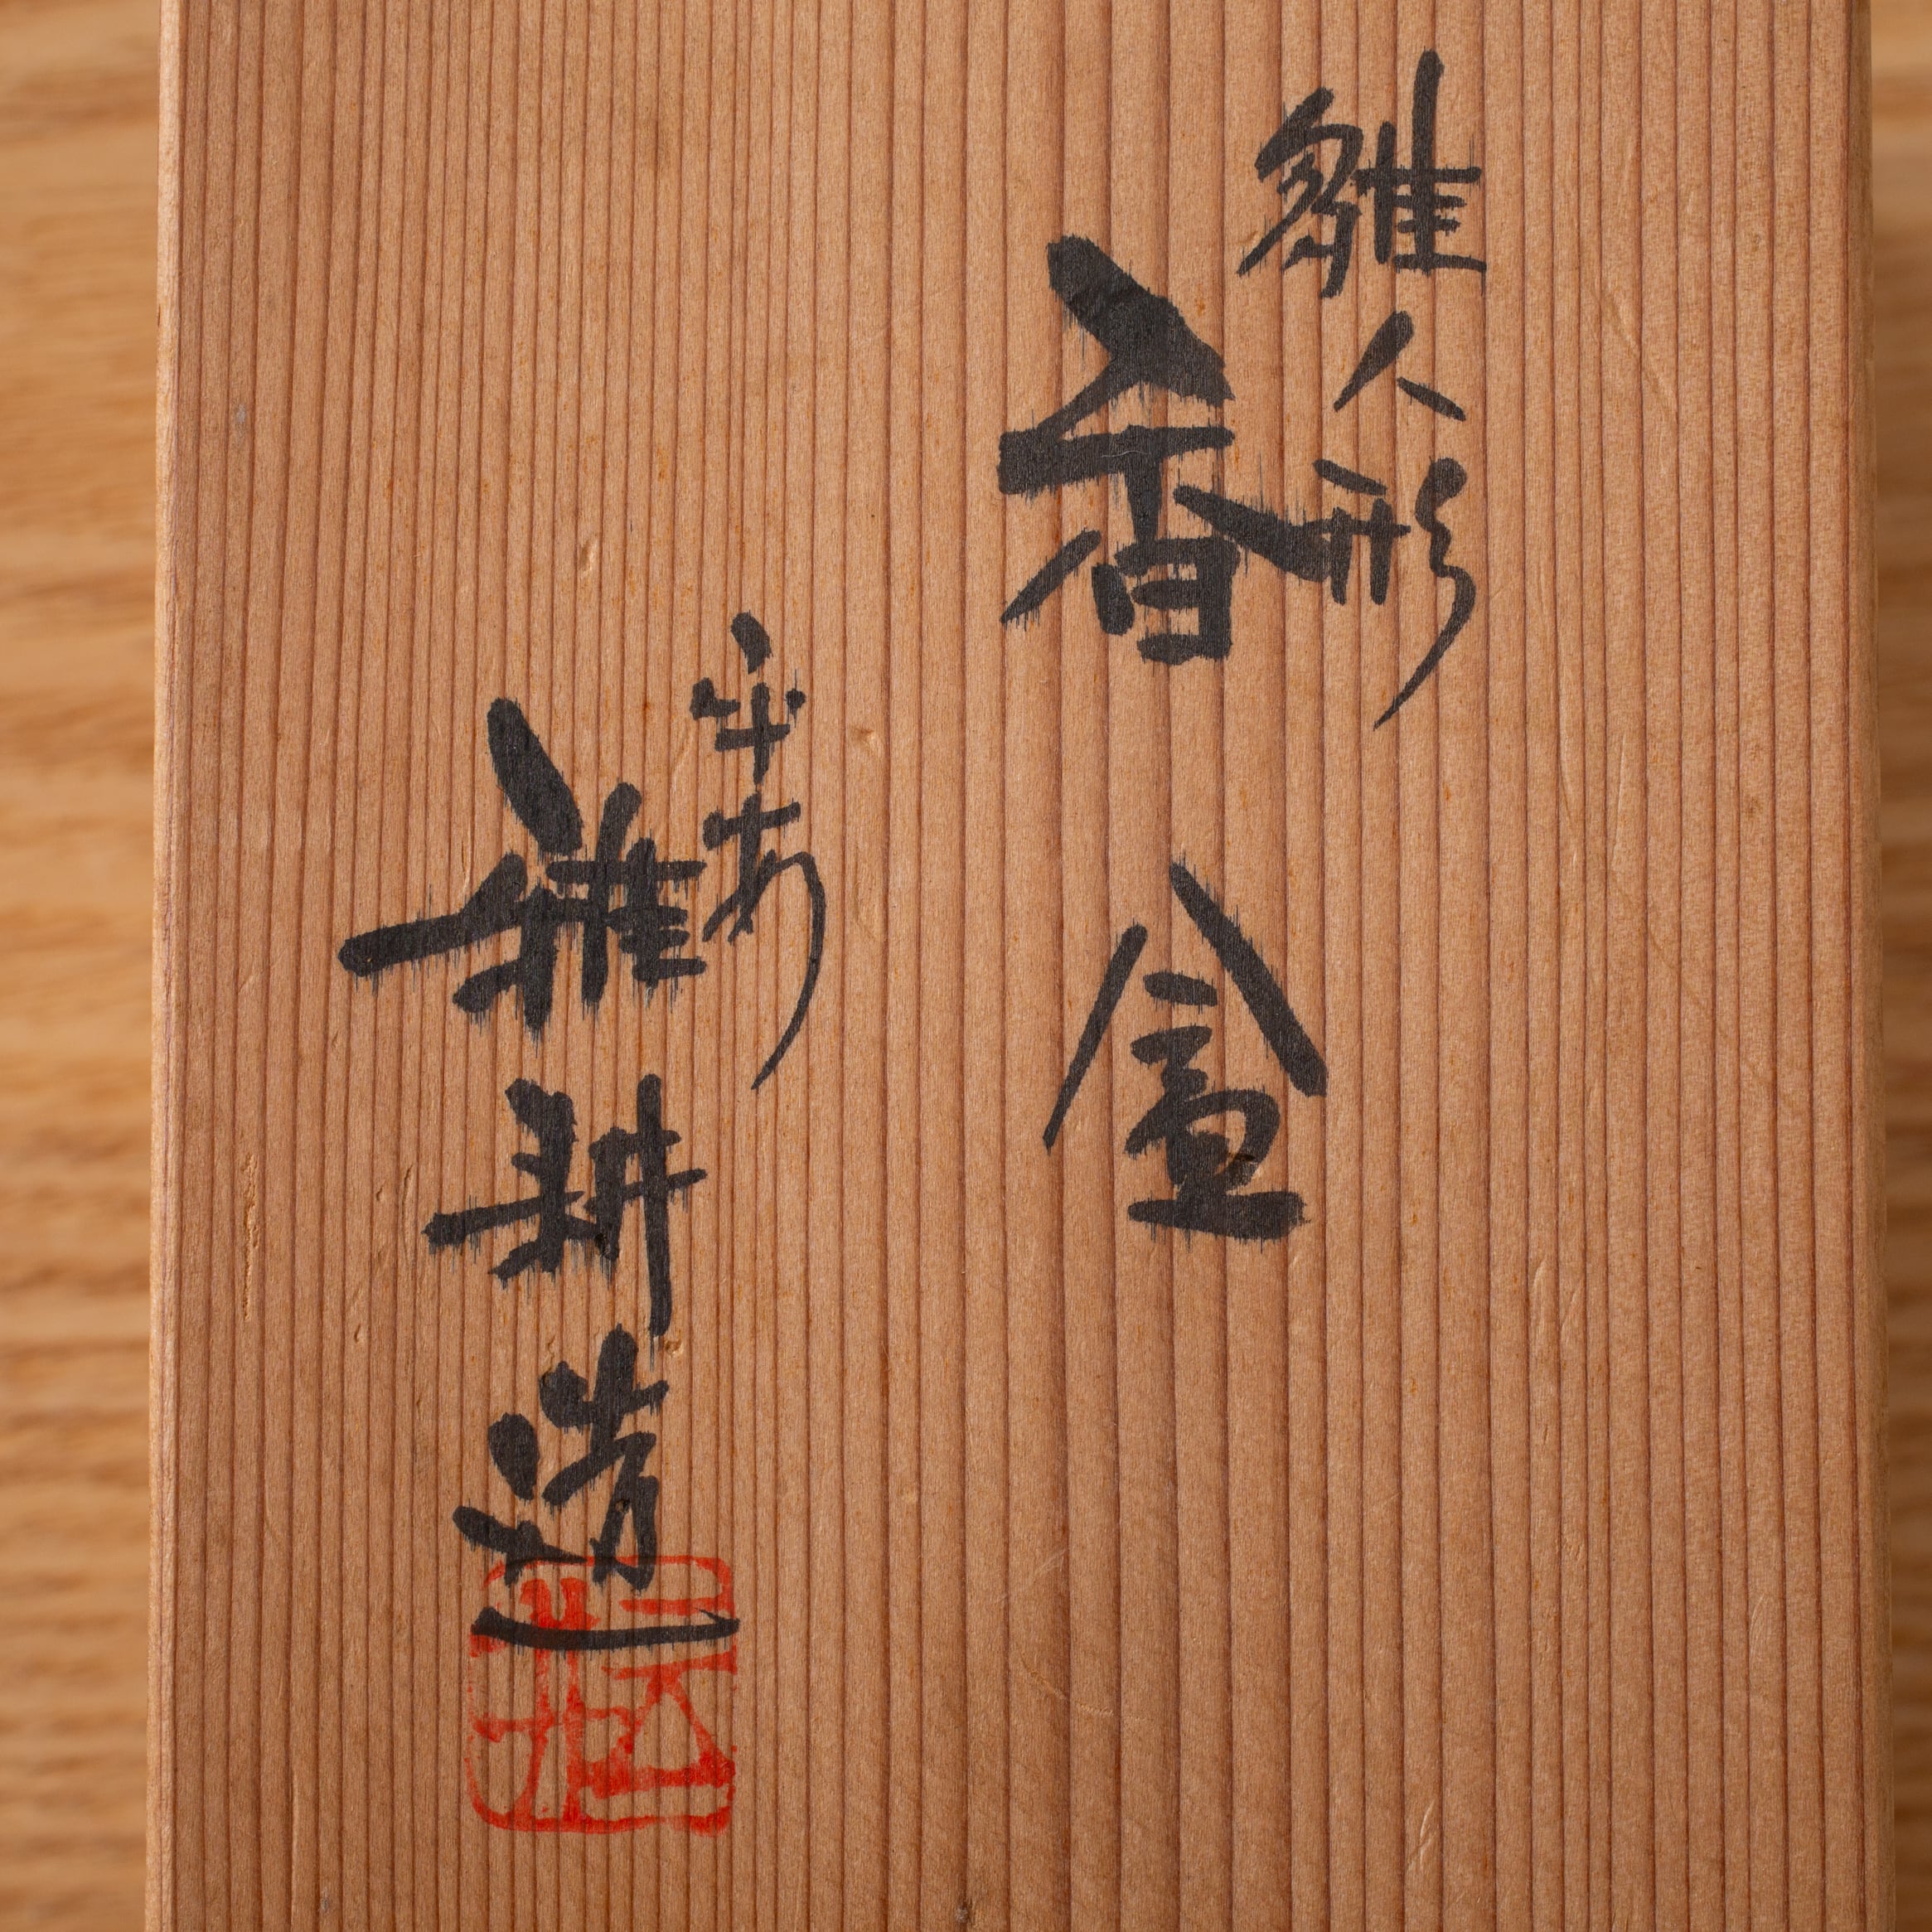 雛人形
香盒
平安
雅耕造